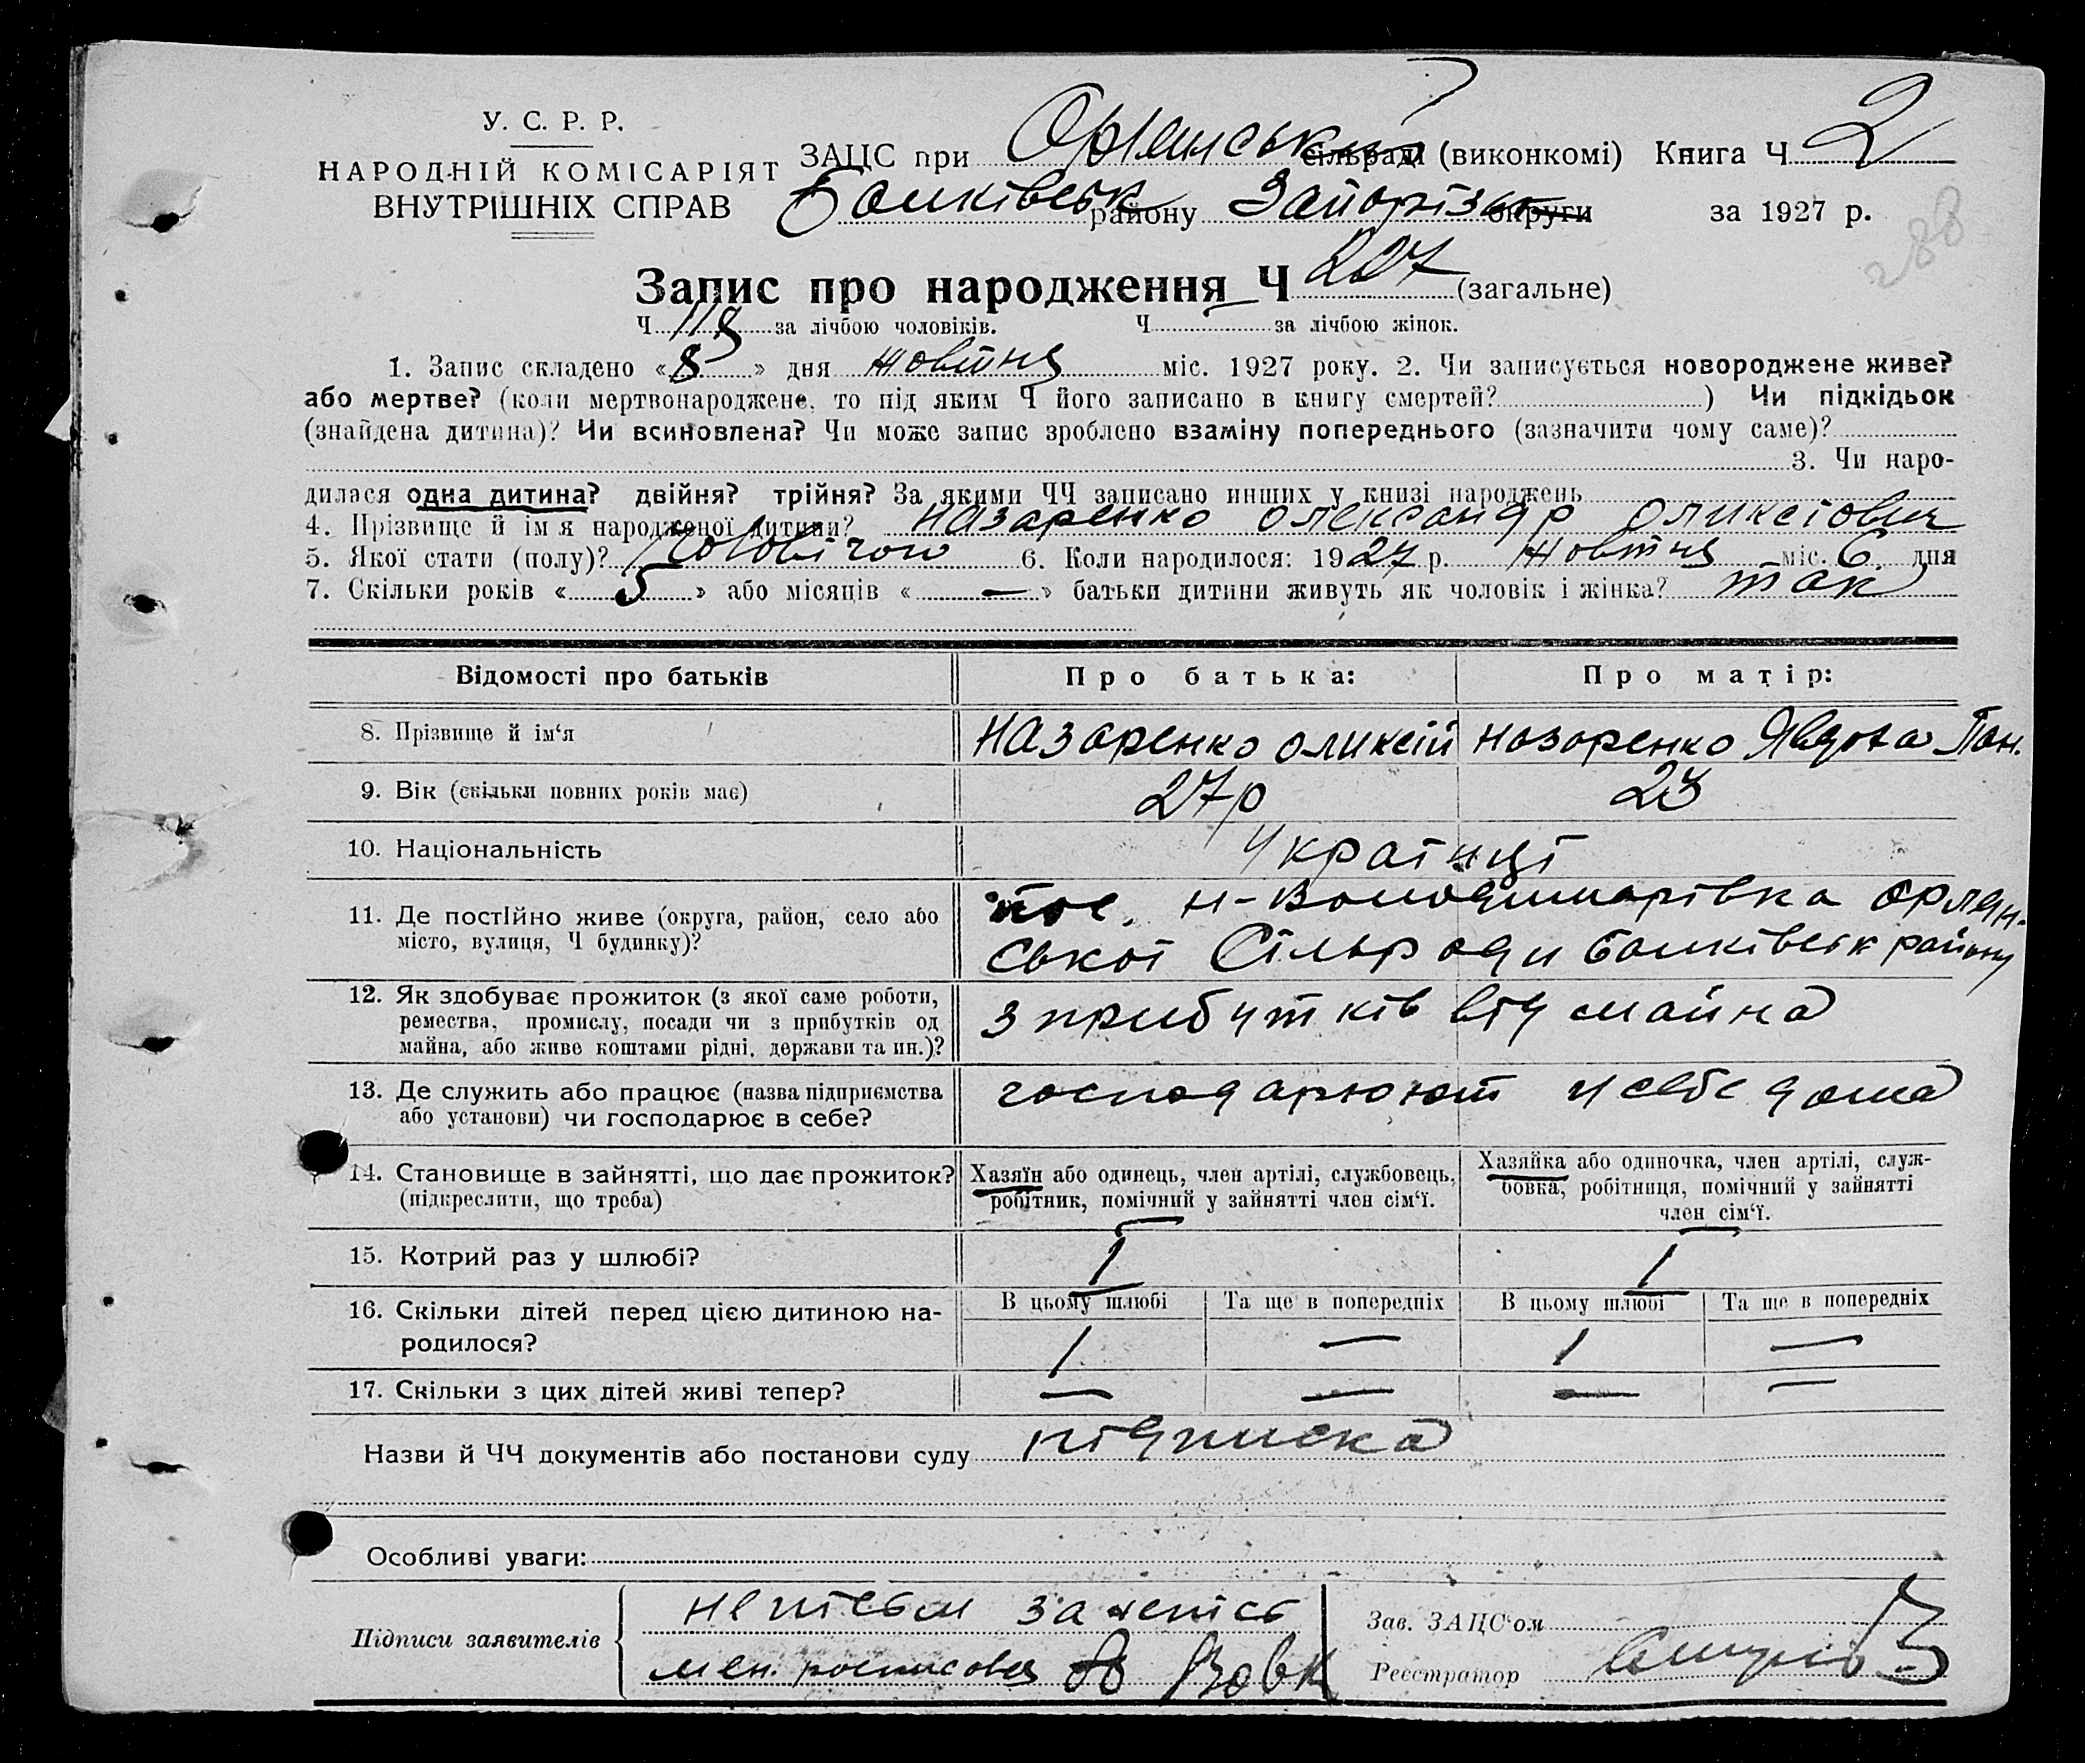 У. С. Р. Р.
НАРОДНІЙ КОМІСАРІЯТ
ВНУТРІШНІХ СПРАВ
ЗАЦС при Орлянській сільраді (виконкомі) Книга Ч 2
району Запорізьк округи за 1927 р.
288
Запис про народження Ч 207 (загальне)
Ч 118 за лічбою чоловіків. Ч — за лічбою жінок.
1. Запис складено «8» дня жовтня міс. 1927 року. 2. Чи записується новороджене живе?
або мертве? (коли мертвонароджене, то під яким Ч його записано в книгу смертей? ) Чи підкідьок
(знайдена дитина)? Чи всиновлена? Чи може запис зроблено взаміну попереднього (зазначити чому саме)?
3. Чи наро-
дилася одна дитина? двійня? трійня? За якими ЧЧ записано инших у книзі народжень
4. Прізвище й ім я народженої дитини? Назаренко Олександр Оликсіович
5. Якої стати (полу)? 6. Коли народилося: 1927 р. жовтня міс. 6. дня
7. Скільки років «5» або місяців «—» батьки дитини живуть як чоловік і жінка? так
Відомості про батьків Про батька: Про матір:
8. Прізвище й ім‘я Назаренко Оликсій Назаренко Явдоха Пан.
9. Вік (скільки повних років має) 27р 23
10. Національність Українці
11. Де постійно живе (округа, район, село або
місто, вулиця, Ч будинку)?
пос. Н-Володимирівка Орлян-
ської Сільради району
12. Як здобуває прожиток (з якої саме роботи,
ремества, промислу, посади чи з прибутків од
майна, або живе коштами рідні, держави та ин.)?
з прибутків від майна
13. Де служить або працює (назва підприємства
або установи) чи господарює в себе?
господарюют у себе дома
14. Становище в зайнятті, що дає прожиток?
(підкреслити, що треба)
Хазяїн або одинець, член артілі, службовець,
робітник, помічний у зайнятті член сім‘ї.
Хазяйка або одиночка, член артілі, служ-
бовка, робітниця, помічний у зайнятті
член сім‘ї.
15. Котрий раз у шлюбі? I I
16. Скільки дітей перед цією дитиною на-
родилося?
В цьому шлюбі Та ще в попередніх В цьому шлюбі Та ще в попередніх
1 — 1 —
17. Скільки з цих дітей живі тепер? — — — —
Назви й ЧЧ документів або постанови суду підписка
Особливі уваги:
Підписи заявителів
Вовк
Зав. ЗАЦС‘ом
Реєстратор